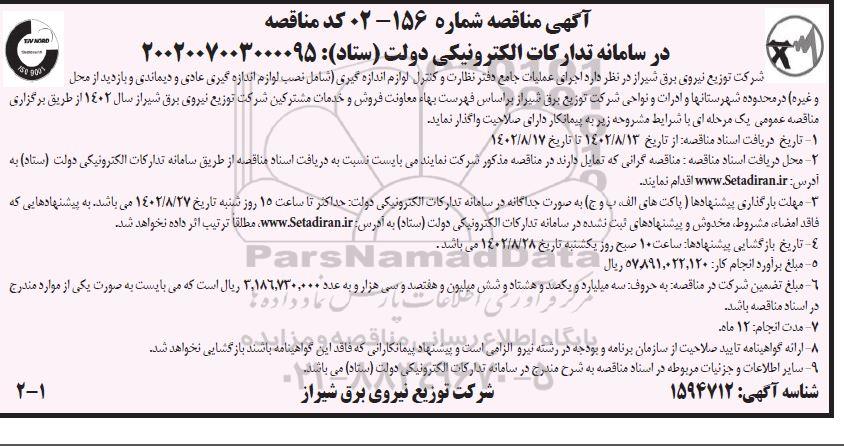 آگهی مناقصه شماره ۱۵۶-۰۲ کد مناقصه
در سامانه تدارکات الکترونیکی دولت (ستاد): ۲۰۰۲۰۰۷۰۰۳۰۰۰۰۹۵
TÜV NORD
ISO 9001
شرکت توزیع نیروی برق شیراز در نظر دارد اجرای عملیات جامع دفتر نظارت و کنترل لوازم اندازه گیری (شامل نصب لوازم اندازه گیری عادی و دیماندی و بازدید از محل
و غیره) درمحدوده شهرستانها و ادرات و نواحی شرکت توزیع برق شیراز براساس فهرست بهاء معاونت فروش و خدمات مشترکین شرکت توزیع نیروی برق شیراز سال ۱۴۰۲ از طریق برگزاری
مناقصه عمومی یک مرحله ای با شرایط مشروحه زیر به پیمانکار دارای صلاحیت واگذار نماید.
۱- تاریخ دریافت اسناد مناقصه: از تاریخ ۱۴۰۲/۸/۱۳ تا تاریخ ۱۴۰۲/۸/۱۷
۲- محل دریافت اسناد مناقصه : مناقصه گرانی که تمایل دارند در مناقصه مذکور شرکت نمایند می بایست نسبت به دریافت اسناد مناقصه از طریق سامانه تدارکات الکترونیکی دولت (ستاد) به
آدرس: www.Setadiran.ir اقدام نمایند.
۳- مهلت بارگذاری پیشنهادها ( پاکت های الف، ب و ج) به صورت جداگانه در سامانه تدارکات الکترونیکی دولت: حداکثر تا ساعت ۱۵ روز شنبه تاریخ ۱۴۰۲/۸/۲۷ می باشد. به پیشنهادهایی که
فاقد امضاء، مشروط، مخدوش و پیشنهادهای ثبت نشده در سامانه تدارکات الکترونیکی دولت (ستاد) به آدرس: www.Setadiran.ir، مطلقاً ترتیب اثر داده نخواهد شد.
۴- تاریخ بازگشایی پیشنهادها: ساعت ۱۰ صبح روز یکشنبه تاریخ ۱۴۰۲/۸/۲۸ می باشد .
ParsNamadData
۵- مبلغ برآورد انجام کار: ۵۷,۸۹۱,۰۲۲,۱۲۰ ریال
۶- مبلغ تضمین شرکت در مناقصه: به حروف: سه میلیارد و یکصد و هشتاد و شش میلیون و هفتصد و سی هزار و به عدد ۳,۱۸۶,۷۳۰,۰۰۰ ریال است که می بایست به صورت یکی از موارد مندرج
مرکز فرآوری اطلاعات پارس نماد داده ها
در اسناد مناقصه باشد.
۷- مدت انجام: ۱۲ ماه.
پایگاه اطلاع رسانی مناقصه و مزایده
۸- ارائه گواهینامه تایید صلاحیت از سازمان برنامه و بودجه در رشته نیرو الزامی است و پیشنهاد پیمانکارانی که فاقد این گواهینامه باشند بازگشایی نخواهد شد.
۹- سایر اطلاعات و جزئیات مربوطه در اسناد مناقصه به شرح مندرج در سامانه تدارکات الکترونیکی دولت (ستاد) می باشد.
۰۲۱-۸۸۳۴۹۶۷۰-۵
شناسه آگهی: ۱۵۹۴۷۱۲
شرکت توزیع نیروی برق شیراز
۲-۱